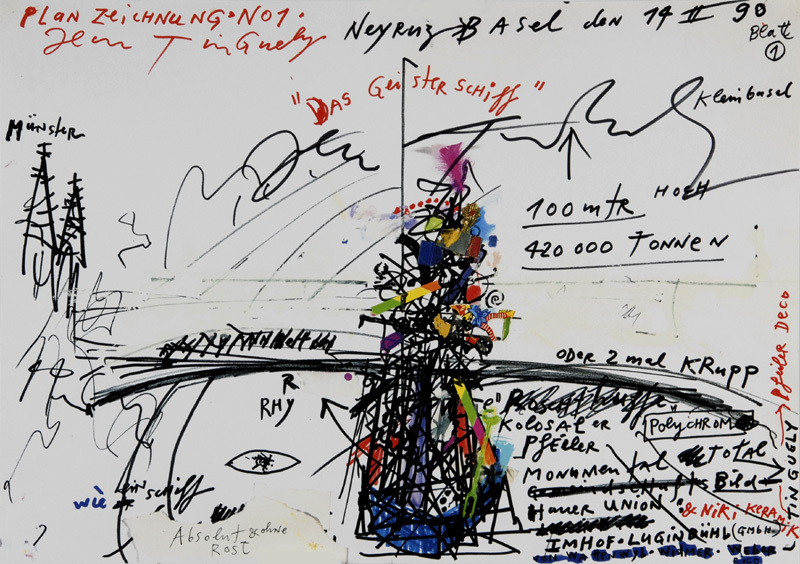 PLAN ZEICHNUNG·NO1·
Jean Tinguely
Neyruz Basel den 14 II 90
Blatt
1
"DAS GEISTERSCHIFF"
Kleinbasel
Münster
100 mtr HOCH
420 000 TONNEN
ODER 2 mal KRUPP
RHY
KOLOSALer
Pfeiler
POLYCHROM
TOTAL
Monumental
Bild
Haller UNION
& NiKi KERAMIK
IMHOF·LUGINBÜHL (GMBH)
WEBER
wie ein schiff
Absolut & ohne
ROST
TINGUELY
Pfeiler DECO